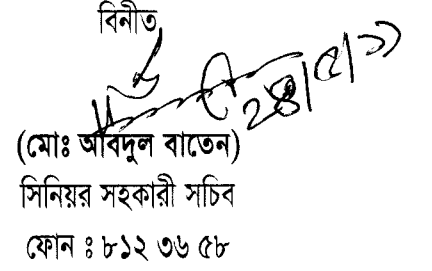 বিনীত
(মোঃ আবদুল বাতেন)
সিনিয়র সহকারী সচিব
ফোন ঃ ৮১২ ৩৬ ৫৮